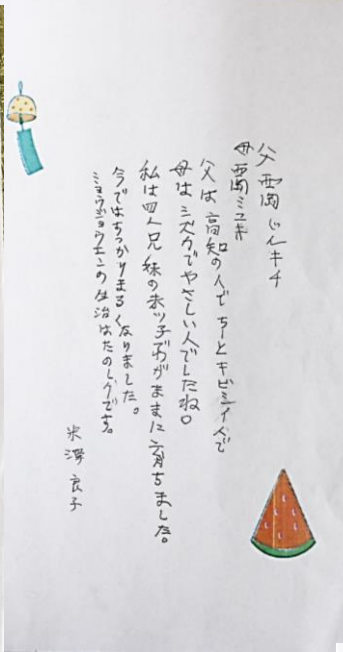 父 西岡じんキチ
母 西岡ミユキ
父は高知の人でちとキビシイ人で
母はシズカでやさしい人でしたね。
私は四人兄妹の末ッ子でわがままに育ちました。
今ではちっかりまるくなりました。
ミョウジョウエンの生治はたのしくです。
米澤良子